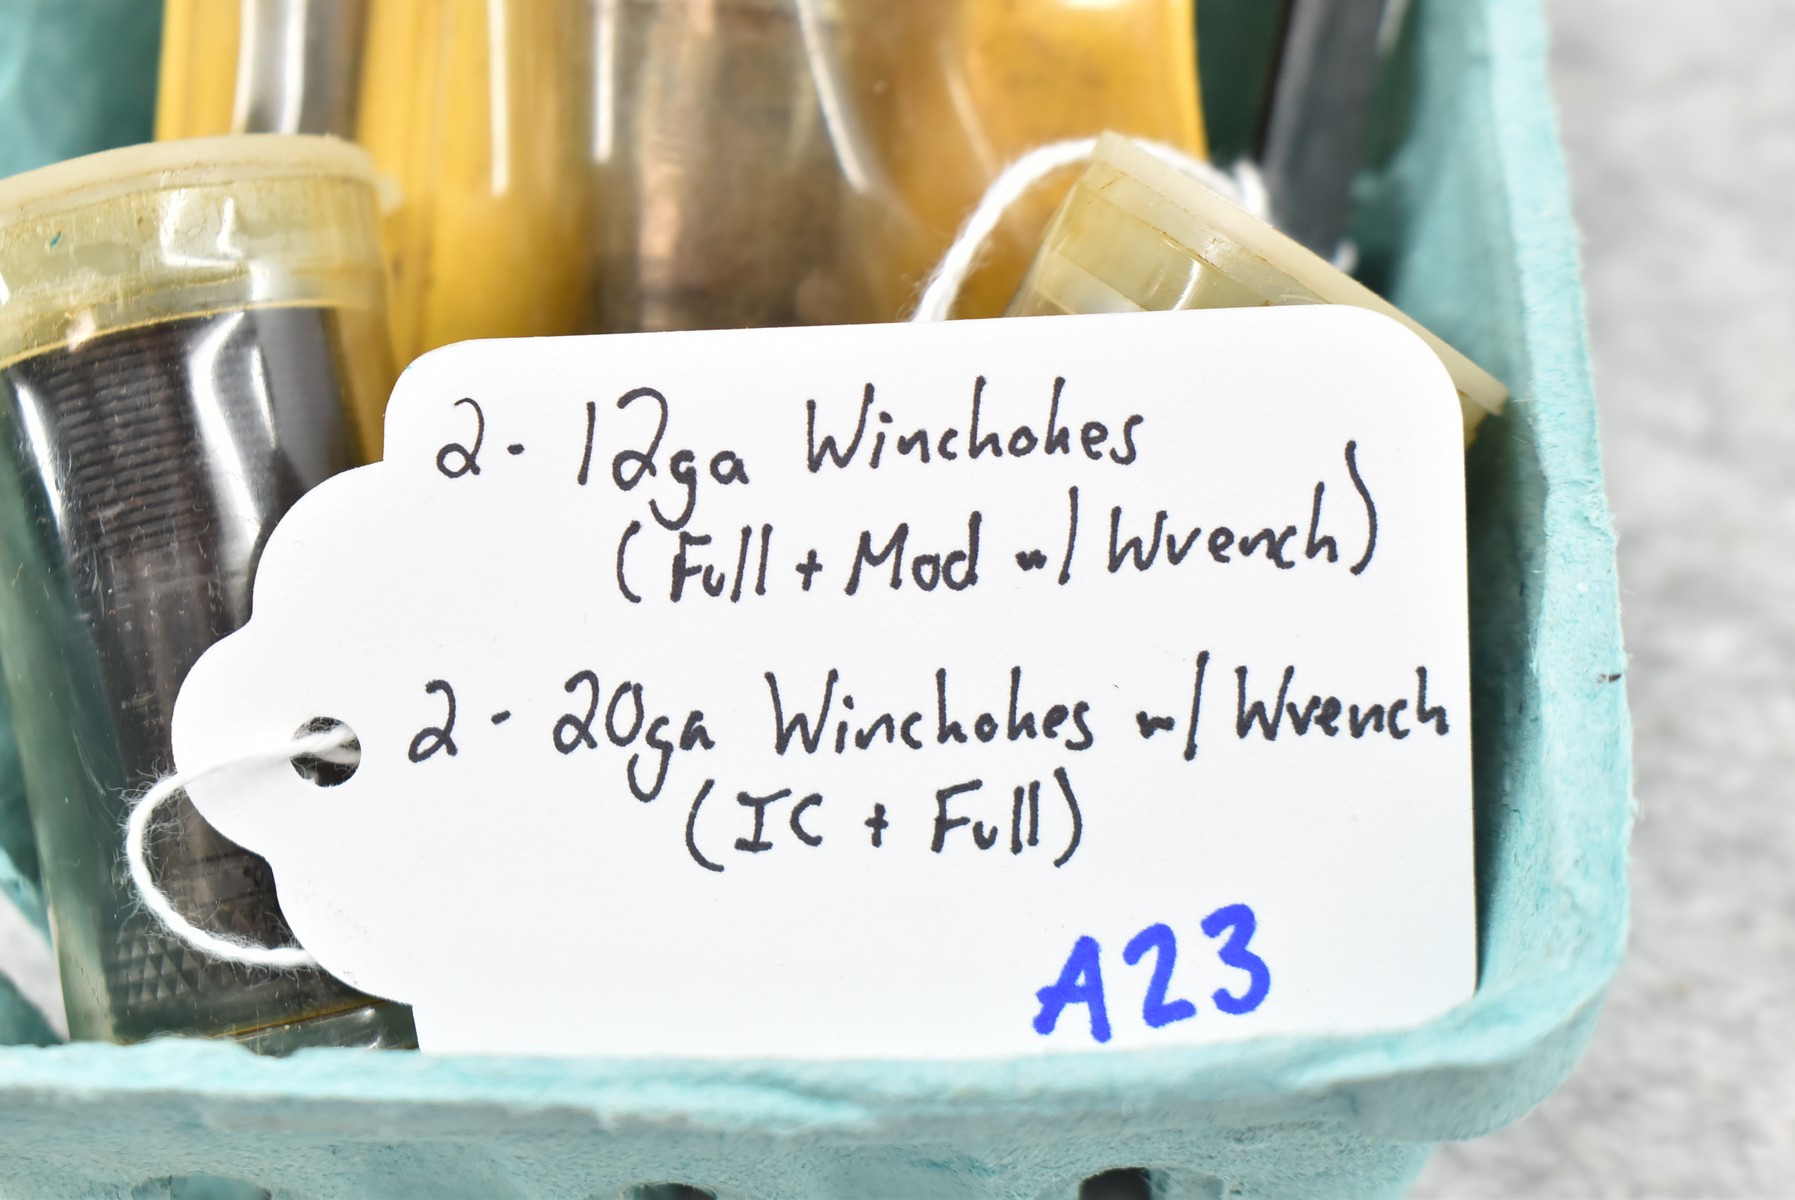 2 - 12ga Winchokes
(Full + Mod w/ Wrench)
2 - 20ga Winchokes w/ Wrench
(IC + Full)
A23